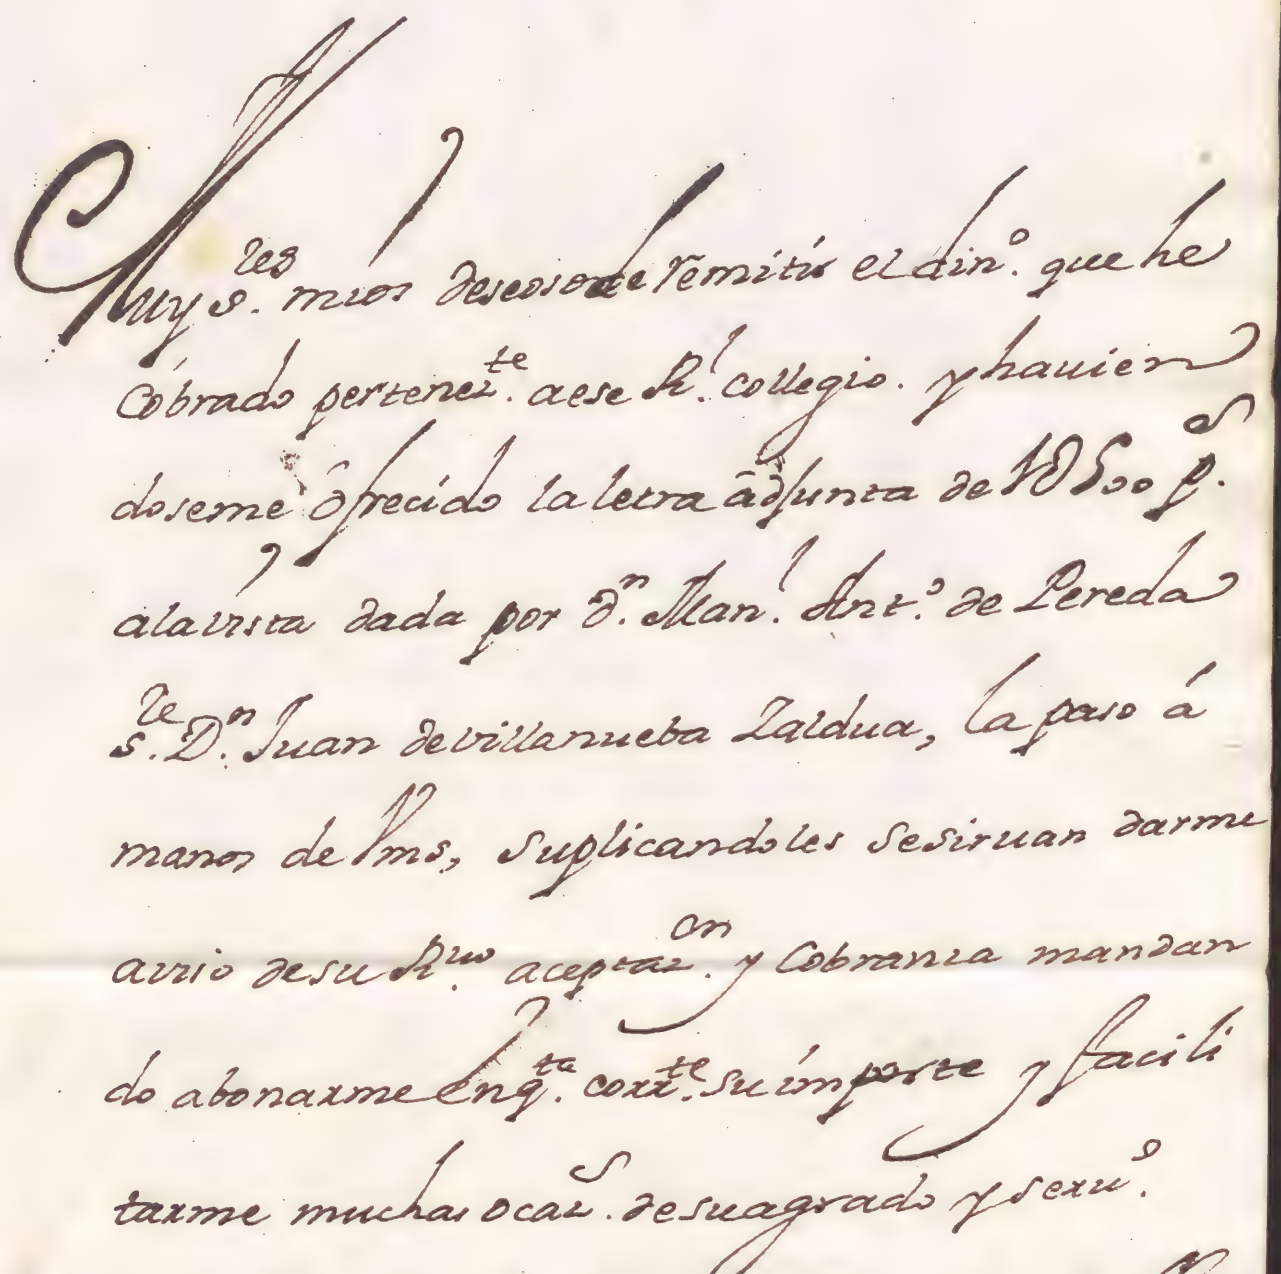 Muy s.res mios deseoso de remitir el din.o que he
Cobrado pertenez.te a ese R.l collegio. y hauien
doseme ofrecido la letra adjunta de 1U500 p.s
ala vista dada por d.n Man.l Ant.o de Pereda
s.re D.n Juan de villanueba Zaldua, la paso á
manos de Vms, suplicandoles se siruan darme
aviso de su R.uo aceptaz.on y Cobranza mandan
do abonarme en q.ta corr.te su importe y facili
tarme muchas ocaz.s de su agrado y seru.o